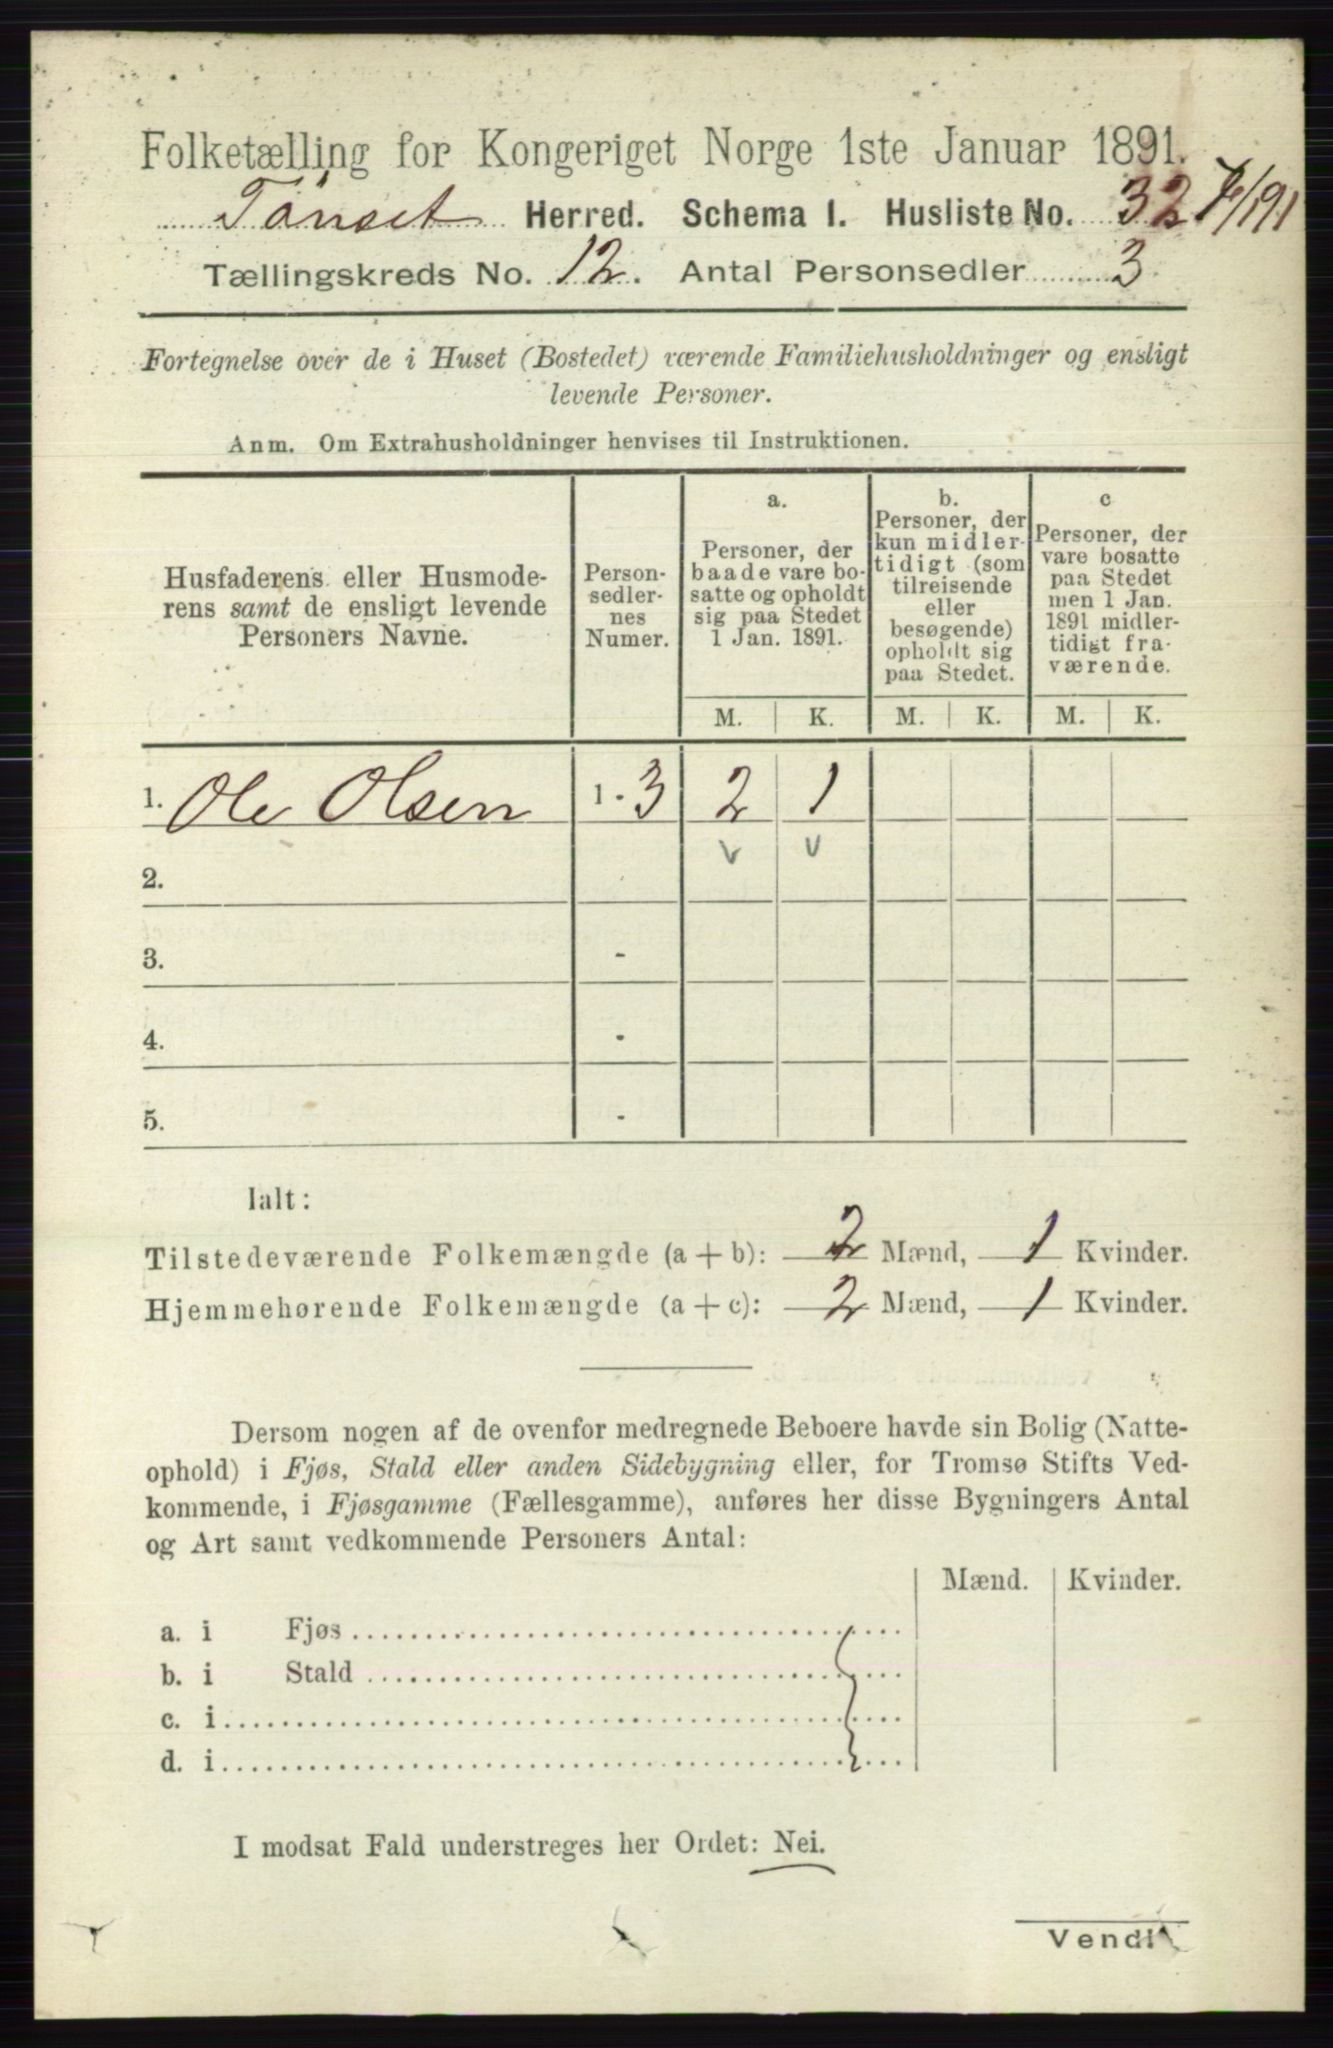 Folketælling for Kongeriget Norge 1ste Januar 1891.
Tönset Herred. Schema I. Husliste No. 32
Tællingskreds No. 12. Antal Personsedler 3
Fortegnelse over de i Huset (Bostedet) værende Familiehusholdninger og ensligt
levende Personer.
Anm. Om Extrahusholdninger henvises til Instruktionen.
Husfaderens eller Husmode-
rens samt de ensligt levende
Personers Navne.
Person-
sedler-
nes
Numer.
a.
Personer, der
baade vare bo-
satte og opholdt
sig paa Stedet
1 Jan. 1891.
b.
Personer, der
kun midler-
tidigt (som
tilreisende
eller
besøgende)
opholdt sig
paa Stedet.
c
Personer, der
vare bosatte
paa Stedet
men 1 Jan.
1891 midler-
tidigt fra-
værende.
M. K. M. K. M. K.
1. Ole Olsen 1 - 3 2 1
2.
3. -
4. -
5. -
Ialt:
Tilstedeværende Folkemængde (a + b): 2 Mænd, 1 Kvinder.
Hjemmehørende Folkemængde (a + c): 2 Mænd, 1 Kvinder.
Dersom nogen af de ovenfor medregnede Beboere havde sin Bolig (Natte-
ophold) i Fjøs, Stald eller anden Sidebygning eller, for Tromsø Stifts Ved-
kommende, i Fjøsgamme (Fællesgamme), anføres her disse Bygningers Antal
og Art samt vedkommende Personers Antal:
Mænd. Kvinder.
a. i Fjøs
b. i Stald
c. i
d. i
I modsat Fald understreges her Ordet: Nei.
Vend!